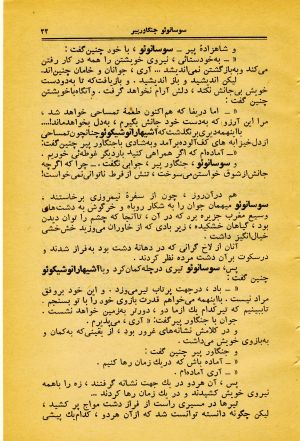 سوسانوئو جنگاور پیر ۲۳
و شاهزادهٔ پیر ــ سوسانوئو ، با خود چنین گفت :
« ــ به‌خودستائی ، نیروی خویشتن را همه در کار رفتن
می‌کند و به‌بازگشتن نمی‌اندیشد ... آری ، جوانان و خامان چنین‌اند.
لیکن اندیشید و باز اندیشید . و بازیافت‌که تا به‌دودست
خویش بی‌جانش نکند ، دلش آرام نخواهد گرفت . و آنگاه باخویشتن
چنین گفت :
« ــ اما دریغا که هم‌اکنون طعمهٔ تمساحی خواهد شد ،
مرا این آرزو که به‌دست خود جانش بگیرم ، به‌دل بخواهدماند!...»
بااینهمه دیری برنگذشت‌که آشیهارانوشیکوئو چنانچون تمساحی
از دل خیزابه های کف‌آلوده برآمد و به‌شادی باجنگاور پیر چنین گفت:
« ــ آماده‌ام که اگر همراهی کنید بار دیگر غوطه‌ئی خوریم .»
و سوسانوئو ، جنگاور پیر ، جوابی نگفت، ... چرا که اگرچه
جانش از شوق خواستن می‌سوخت ، تنش از فرط ناتوانی نمی‌خواست!
هم در آن روز ، چون از سفرهٔ نیمروزی برخاستند .
سوسانوئو میهمان جوان را به شکار روباه و خرگوش به دشت‌های
وسیع مغرب جزیره برد که در آن ، تا آنجا که چشم را توان دیدن
بود ، گیاهان خشکیده ، زیر بادی که از خاوران می‌وزید خش‌خشی
خیال‌انگیز داشت .
آنان از لاخ گرانی که در دهانهٔ دشت بود به‌فراز شدند و
در سکوت برآن دشت مرده نظر کردند .
پس، سوسانوئو تیری در چله کمان کرد و با آشیهارانوشیکوئو
چنین گفت :
« ــ باد ، درجهت پرتاب تیر می‌وزد . و این خود بروفق
مراد نیست . بااینهمه می‌خواهم قدرت بازوی خود را با تو بسنجم .
تا ببینیم که تیر کدام یك از ما دو ، دورتر به‌زمین خواهد نشست .
جوان با جنگاور پیر گفت : « آری ، می‌پذیرم .
و در کلامش نشانه‌های غرور بود ، از یقینی‌که به‌کمان و
به‌بازوی خویش می‌داشت .
و جنگاور پیر گفت :
« ــ آماده باش که در یك زمان رها کنیم .
« ــ آری آماده‌ام .
پس ، آن هردو در یك جهت نشانه گرفتند ، زه را باهمه
نیروی خویش کشیدند و در یك زمان رها کردند ...
تیرها در مسیری راست از فراز دشت مواج پر کشید ،
لیکن چگونه دانسته توانست شد که از آن هردو ، کدام‌یك پیشی